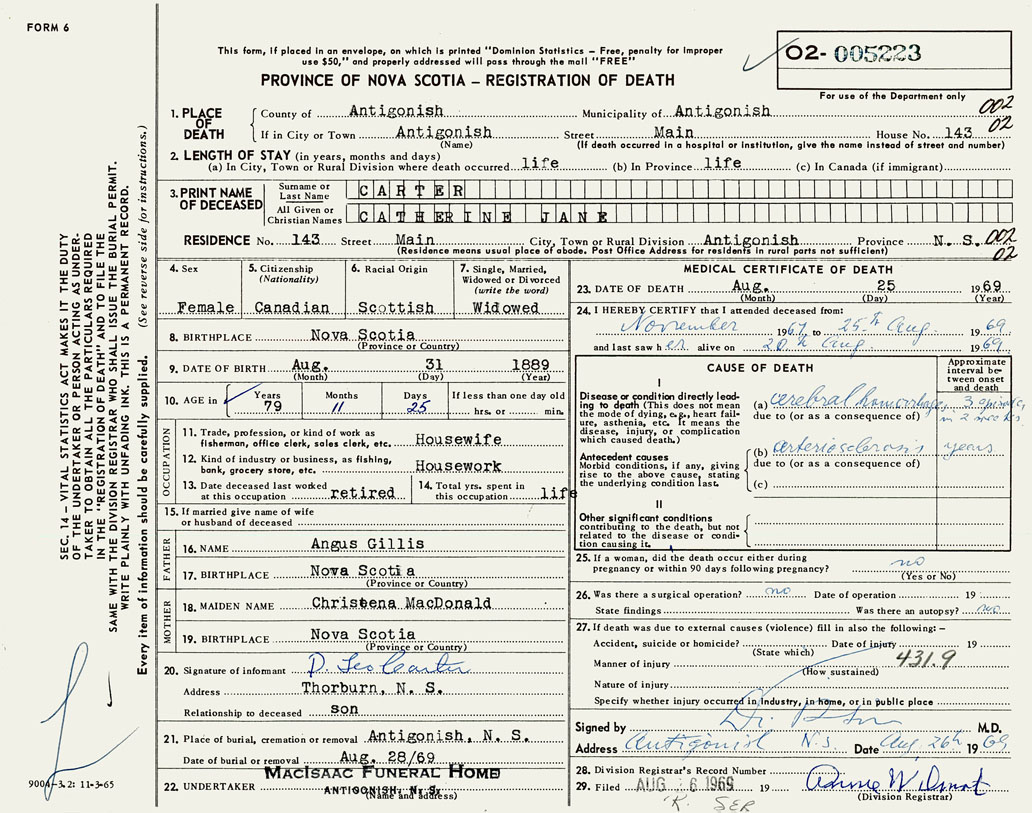 FORM 6
This form, if placed in an envelope, on which is printed "Dominion Statistics – Free, penalty for improper
use $50," and properly addressed will pass through the mail "FREE"
PROVINCE OF NOVA SCOTIA – REGISTRATION OF DEATH
O2- 005223
For use of the Department only
1. PLACE OF DEATH
County of Antigonish Municipality of Antigonish 002
If in City or Town Antigonish Street Main House No. 143 02
(Name) (If death occurred in a hospital or institution, give the name instead of street and number)
2. LENGTH OF STAY (in years, months and days)
(a) In City, Town or Rural Division where death occurred life (b) In Province life (c) In Canada (if immigrant)
3. PRINT NAME OF DECEASED
Surname or Last Name CARTER
All Given or Christian Names CATHERINE JANE
RESIDENCE No. 143 Street Main City, Town or Rural Division Antigonish Province N. S. 002
(Residence means usual place of abode. Post Office Address for residents in rural parts not sufficient) 02
4. Sex Female
5. Citizenship (Nationality) Canadian
6. Racial Origin Scottish
7. Single, Married, Widowed or Divorced (write the word) Widowed
8. BIRTHPLACE Nova Scotia
(Province or Country)
9. DATE OF BIRTH Aug. 31 1889
(Month) (Day) (Year)
10. AGE in Years 79 Months 11 Days 25 If less than one day old hrs. or min.
OCCUPATION
11. Trade, profession or kind of work as
fisherman, office clerk, sales clerk, etc. Housewife
12. Kind of industry or business, as fishing,
bank, grocery store, etc. Housework
13. Date deceased last worked
at this occupation retired
14. Total yrs. spent in
this occupation life
15. If married give name of wife
or husband of deceased
FATHER
16. NAME Angus Gillis
17. BIRTHPLACE Nova Scotia
(Province or Country)
MOTHER
18. MAIDEN NAME Christena MacDonald
19. BIRTHPLACE Nova Scotia
(Province or Country)
20. Signature of informant D. Leo Carter
Address Thorburn, N. S.
Relationship to deceased son
21. Place of burial, cremation or removal Antigonish, N. S.
Date of burial or removal Aug. 28/69
MACISAAC FUNERAL HOME
22. UNDERTAKER ANTIGONISH, N. S.
(Name and address)
MEDICAL CERTIFICATE OF DEATH
23. DATE OF DEATH Aug. 25 1969
(Month) (Day) (Year)
24. I HEREBY CERTIFY that I attended deceased from:
November 1967 to 25th Aug. 1969
and last saw her alive on 20th Aug. 1969
CAUSE OF DEATH
Approximate interval between onset and death
I
Disease or condition directly leading to death (This does not mean the mode of dying, e.g., heart failure, asthenia, etc. It means the disease, injury, or complication which caused death.)
(a) cerebral hemorrhage, 3
due to (or as a consequence of) in 2
Antecedent causes
Morbid conditions, if any, giving rise to the above cause, stating the underlying condition last.
(b) arteriosclerosis years
due to (or as a consequence of)
(c)
II
Other significant conditions
contributing to the death, but not
related to the disease or condition causing it.
25. If a woman, did the death occur either during
pregnancy or within 90 days following pregnancy? no
(Yes or No)
26. Was there a surgical operation? no Date of operation 19
State findings Was there an autopsy? no
27. If death was due to external causes (violence) fill in also the following: –
Accident, suicide or homicide? Date of injury 19
(State which)
Manner of injury 431.9
(How sustained)
Nature of injury
Specify whether injury occurred in industry, in home, or in public place
Signed by Dr. M.D.
Address Antigonish N.S. Date Aug 26th 1969
28. Division Registrar's Record Number
29. Filed AUG 6 1969 19 Anne Wilmot
(Division Registrar)
SEC. 14 – VITAL STATISTICS ACT MAKES IT THE DUTY
OF THE UNDERTAKER OR PERSON ACTING AS UNDER-
TAKER TO OBTAIN ALL THE PARTICULARS REQUIRED
IN THE "REGISTRATION OF DEATH" AND TO FILE THE
SAME WITH THE DIVISION REGISTRAR WHO SHALL ISSUE THE BURIAL PERMIT.
WRITE PLAINLY WITH UNFADING INK. THIS IS A PERMANENT RECORD.
Every item of information should be carefully supplied. (See reverse side for instructions.)
9004-3.2: 11-3-65